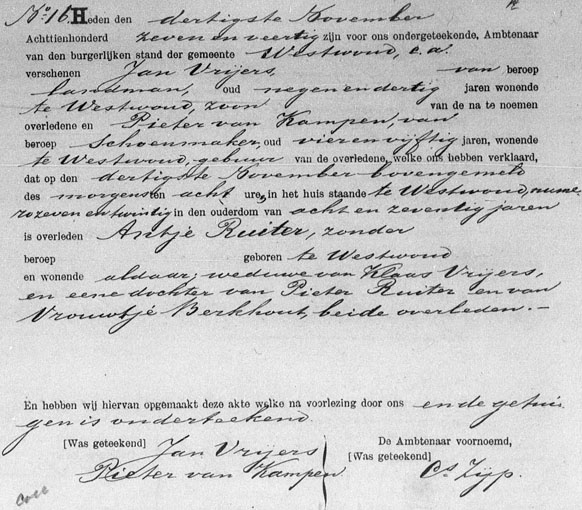 No. 16. Heden den dertigste November
Achttienhonderd zeven en veertig zijn voor ons ondergeteekende, Ambtenaar
van den burgerlijken stand der gemeente Westwoud, c.a.
verschenen Jan Vrijers, van beroep
landman, oud negen en dertig jaren wonende
te Westwoud, zoon van de na te noemen
overledene en Pieter van Kampen, van
beroep Schoenmaker, oud vier en vijftig jaren, wonende
te Westwoud, gebuur van de overledene, welke ons hebben verklaard,
dat op den dertigste November bovengemeld
des morgens ten acht ure, in het huis staande te Westwoud, nume-
ro zeven en twintig in den ouderdom van acht en zeventig jaren
is overleden Antje Ruiter, zonder
beroep geboren te Westwoud
en wonende aldaar; weduwe van Klaas Vrijers,
en eene dochter van Pieter Ruiter en van
Vrouwtje Berkhout, beide overleden. —
En hebben wij hiervan opgemaakt deze akte welke na voorlezing door ons en de getui-
gen is onderteekend.
[Was geteekend] Jan Vrijers
Pieter van Kampen
De Ambtenaar voornoemd,
[Was geteekend] Cs. Zijp.